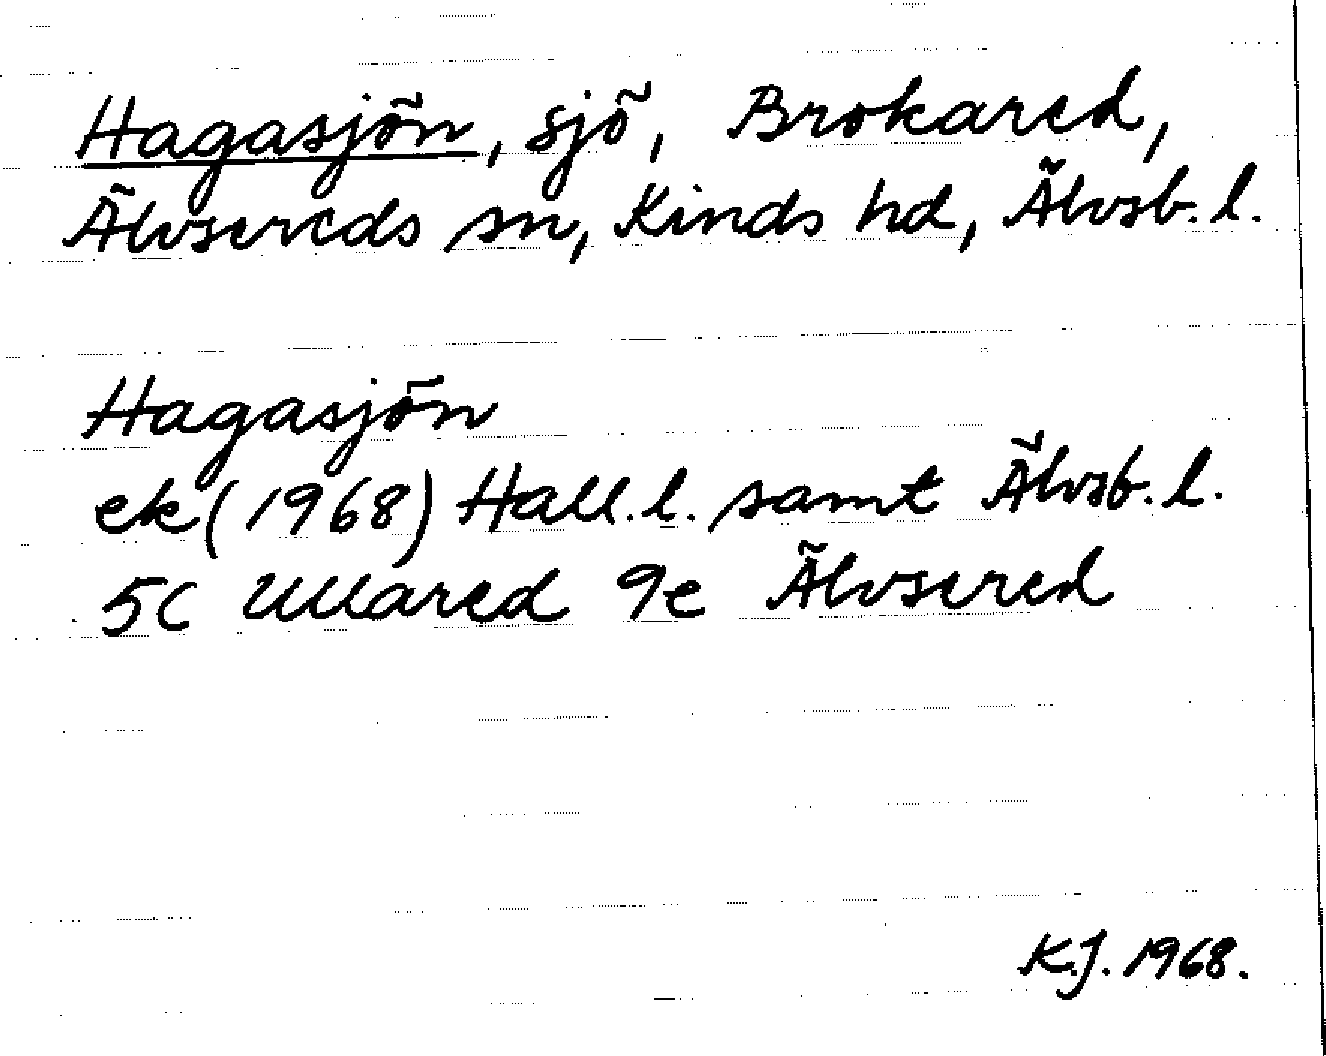 Hagasjön, sjö, Brokared,
Älvsereds sn, Kinds hd, Älvsb. l.
Hagasjön
ek (1968) Hall. l. samt Älvsb. l.
5C Ullared 9e Älvsered
K.J. 1968.